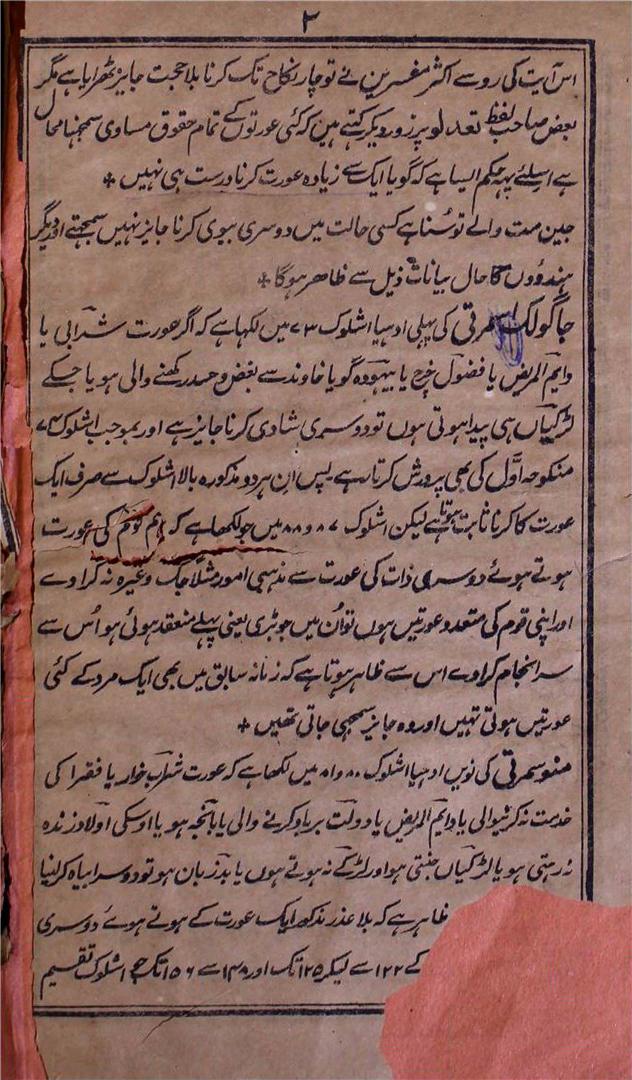 ۲
اس آیت کی رو سے اکثر مفسرین نے تو چار نکاح تک کرنا بلا حجت جایز ٹھرایا ہے مگر
بعض صاحب لفظ تعدلو پر زور دیکر کہتے ہیں کہ کئی عورتوں کے تمام حقوق مساوی سمجہنا محال
ہے اسلئے یہہ حکم ایسا ہے کہ گویا ایک سے زیادہ عورت کرنا درست ہی نہیں ٭
جین مت والے تو سُنا ہے کسی حالت میں دوسری بیوی کرنا جایز نہیں سمجھتے اور دیگر
ہندؤوں کا حال بیانات ذیل سے ظاهر ہوگا ٭
جاگولک سمرتی کی پہلی ادہیا اشلوک ۷۳ میں لکہا ہے کہ اگر عورت شرابی یا
دایم المریض یا فضول خرچ یا بیہودہ گو یا خاوند سے بغض و حسد رکھنے والی ہو یا جسکے
لڑکیاں ہی پیدا ہوتی ہوں تو دوسری شادی کرنا جایز ہے اور بموجب اشلوک ۷۴
منکوحہ اوّل کی بھی پرورش کرتا رہے پس ان ہر دو مذکورہ بالا اشلوک سے صرف ایک
عورت کا کرنا ثابت ہوتا ہے لیکن اشلوک ۸۷ و ۸۸ میں جو لکھا ہے کہ ہم قوم کی عورت
ہوتے ہوئے دوسری ذات کی عورت سے مذہبی امور مثلا جگ وغیرہ نہ کراوے
اور اپنی قوم کی متعدد عورتیں ہوں تو اُن میں جو بڑی یعنی پہلے منعقد ہوئی ہو اُس سے
سرانجام کراوے اس سے ظاہر ہوتا ہے کہ زمانہ سابق میں بھی ایک مرد کے کئی
عورتیں ہوتی تہیں اور وہ جایز سمجہی جاتی تھیں ٭
منو سمرتی کی نویں ادہیا اشلوک ۸۰ و ۸۱ میں لکھا ہے کہ عورت شراب خوار یا فقرا کی
خدمت نہ کرنیوالی یا دایم المریض یا دولت برباد کرنے والی یا بانجہہ ہو یا اوسکی اولاد زندہ
نہ رہتی ہو یا لڑکیاں جنتی ہو اور لڑکے نہ ہوتے ہوں یا بدزبان ہو تو دوسرا بیاہ کرلینا
ظاہر ہے کہ بلا عذر مذکور ایک عورت کے ہوتے ہوئے دوسری
کے ۱۲۲ سے لیکر ۱۲۵ تک اور ۱۴۸ سے ۱۵۶ تک جو اشلوک تقسیم